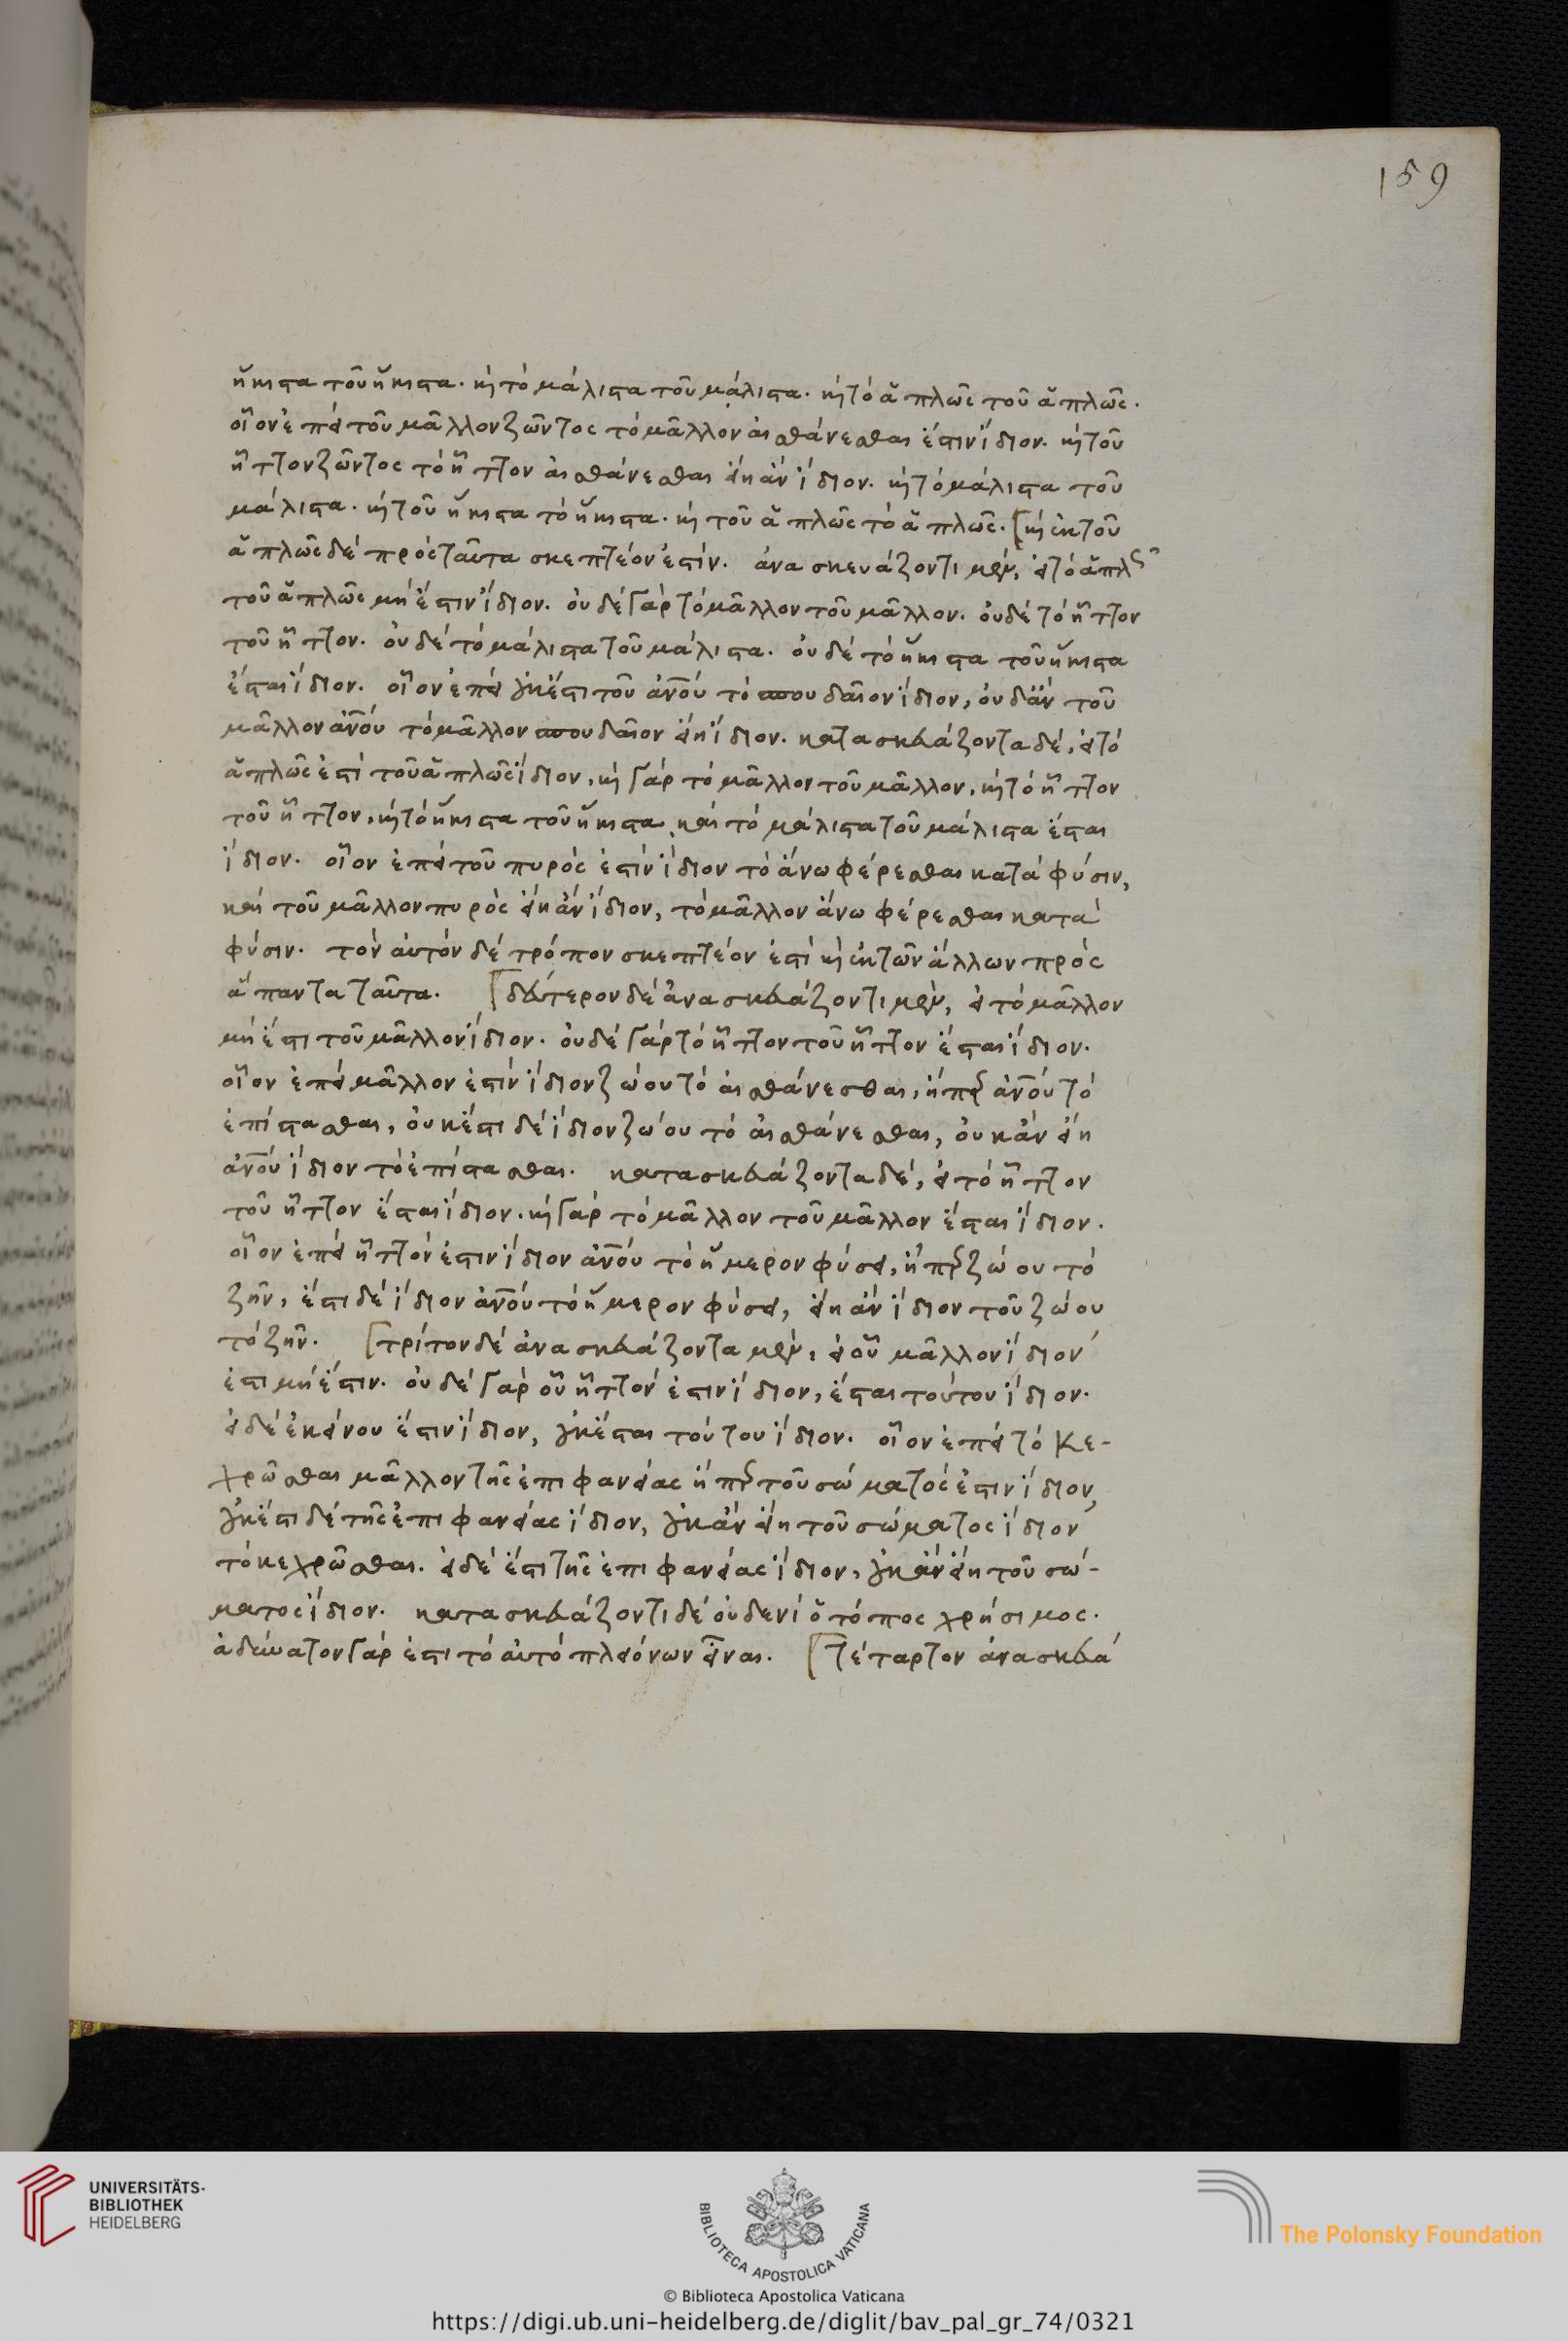 159
ἥκιστα τοῦ ἥκιστα. καὶ τὸ μάλιστα τοῦ μάλιστα. καὶ τὸ ἁπλῶς τοῦ ἁπλῶς.
οἷον ἐπεὶ τοῦ μᾶλλον ζῶντος τὸ μᾶλλον αἰσθάνεσθαι ἐστὶν ἴδιον. καὶ τοῦ
ἧττον ζῶντος τὸ ἧττον αἰσθάνεσθαι εἴη ἂν ἴδιον. καὶ τὸ μάλιστα τοῦ
μάλιστα. καὶ τοῦ ἥκιστα τὸ ἥκιστα. καὶ τοῦ ἁπλῶς τὸ ἁπλῶς. [καὶ ἐκ τοῦ
ἁπλῶς δὲ πρὸς ταῦτα σκεπτέον ἐστίν. ἀνασκευάζοντι μὲν, εἰ τὸ ἁπλῶς
τοῦ ἁπλῶς μὴ ἔστιν ἴδιον. οὐδὲ γὰρ τὸ μᾶλλον τοῦ μᾶλλον. οὐδὲ τὸ ἧττον
τοῦ ἧττον. οὐδὲ τὸ μάλιστα τοῦ μάλιστα. οὐδὲ τὸ ἥκιστα τοῦ ἥκιστα
ἔσται ἴδιον. οἷον ἐπεὶ οὐκ ἔστι τοῦ ἀν̅ου τὸ σπουδαῖον ἴδιον, οὐδ' ἂν τοῦ
μᾶλλον ἀν̅ου τὸ μᾶλλον σπουδαῖον εἴη ἴδιον. κατασκευάζοντα δὲ, εἰ τὸ
ἁπλῶς ἐστὶ τοῦ ἁπλῶς ἴδιον, καὶ γὰρ τὸ μᾶλλον τοῦ μᾶλλον, καὶ τὸ ἧττον
τοῦ ἧττον, καὶ τὸ ἥκιστα τοῦ ἥκιστα, καὶ τὸ μάλιστα τοῦ μάλιστα ἔσται
ἴδιον. οἷον ἐπεὶ τοῦ πυρός ἐστιν ἴδιον τὸ ἄνω φέρεσθαι κατὰ φύσιν,
καὶ τοῦ μᾶλλον πυρὸς εἴη ἂν ἴδιον, τὸ μᾶλλον ἄνω φέρεσθαι κατὰ
φύσιν. τὸν αὐτὸν δὲ τρόπον σκεπτέον ἐστὶ καὶ ἐκ τῶν ἄλλων πρὸς
ἅπαντα ταῦτα. [δεύτερον δὲ ἀνασκευάζοντι μὲν, εἰ τὸ μᾶλλον
μή ἐστι τοῦ μᾶλλον ἴδιον. οὐδὲ γὰρ τὸ ἧττον τοῦ ἧττον ἔσται ἴδιον.
οἷον ἐπεὶ μᾶλλον ἐστὶν ἴδιον ζώου τὸ αἰσθάνεσθαι, ἤπερ ἀν̅ου τὸ
ἐπίστασθαι, οὐκ ἔστι δὲ ἴδιον ζώου τὸ αἰσθάνεσθαι, οὐκ ἂν εἴη
ἀν̅ου ἴδιον τὸ ἐπίστασθαι. κατασκευάζοντα δὲ, εἰ τὸ ἧττον
τοῦ ἧττον ἔσται ἴδιον. καὶ γὰρ τὸ μᾶλλον τοῦ μᾶλλον ἔσται ἴδιον.
οἷον ἐπεὶ ἧττόν ἐστιν ἴδιον ἀν̅ου τὸ ἥμερον φύσει, ἤπερ ζώου τὸ
ζῆν, ἔστι δὲ ἴδιον ἀν̅ου τὸ ἥμερον φύσει, εἴη ἂν ἴδιον τοῦ ζώου
τὸ ζῆν. [τρίτον δὲ ἀνασκευάζοντα μὲν, εἰ οὗ μᾶλλον ἴδιόν
ἐστι μὴ ἔστιν. οὐδὲ γὰρ οὗ ἧττόν ἐστιν ἴδιον, ἔσται τούτου ἴδιον.
εἰ δὲ ἐκείνου ἔστιν ἴδιον, οὐκ ἔσται τούτου ἴδιον. οἷον ἐπεὶ τὸ κε-
χρῶσθαι μᾶλλον τῆς ἐπιφανείας ἤπερ τοῦ σώματός ἐστιν ἴδιον,
οὐκ ἔστι δὲ τῆς ἐπιφανείας ἴδιον, οὐκ ἂν εἴη τοῦ σώματος ἴδιον
τὸ κεχρῶσθαι. εἰ δὲ ἔστι τῆς ἐπιφανείας ἴδιον, οὐκ ἂν εἴη τοῦ σώ-
ματος ἴδιον. κατασκευάζοντι δὲ οὐδενὶ ὁ τόπος χρήσιμος.
ἀδύνατον γάρ ἐστι τὸ αὐτὸ πλειόνων εἶναι. [τέταρτον ἀνασκευά
UNIVERSITÄTS-
BIBLIOTHEK
HEIDELBERG
BIBLIOTECA APOSTOLICA VATICANA
The Polonsky Foundation
© Biblioteca Apostolica Vaticana
https://digi.ub.uni-heidelberg.de/diglit/bav_pal_gr_74/0321